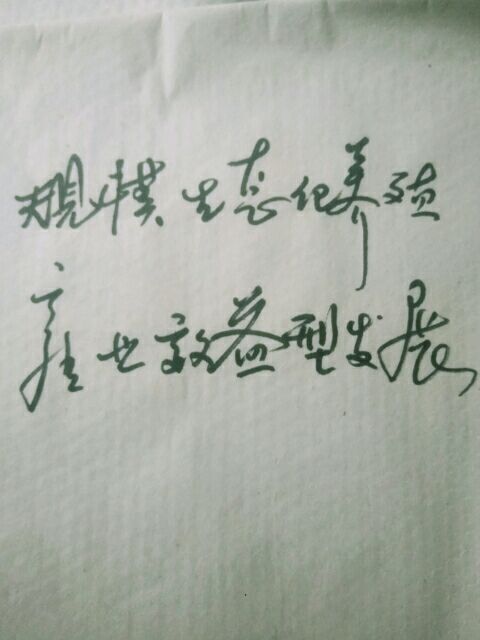 规模生态化养殖
产业效益型发展